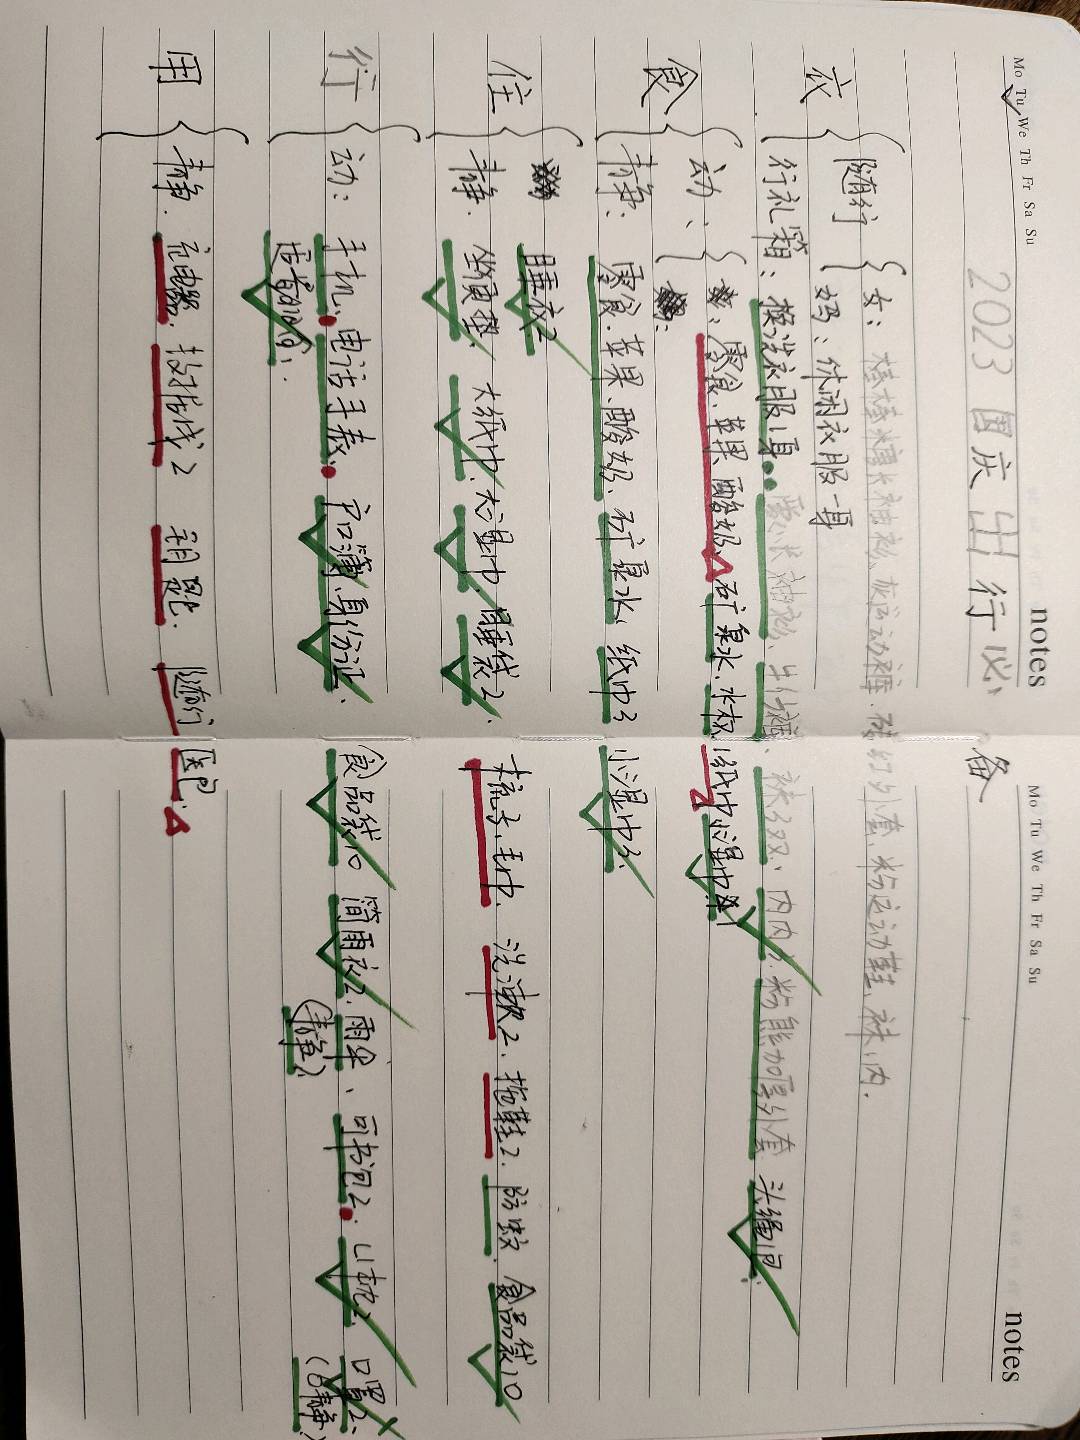 notes
Mo Tu We Th Fr Sa Su
Mo Tu We Th Fr Sa Su
notes
2023 国庆出行必备
衣
随行
女：棒棒糖长袖衫、灰运动裤、砖红外套、粉运动鞋、袜、内.
妈：休闲衣服一身
行礼箱：换洗衣服1身 长袖衫、牛仔裤、袜3双、内内 粉熊加厚外套 头绳1
食
动：
零食.苹果 酸奶、矿泉水、水杯、纸巾、小湿巾1
静：零食.苹果、酸奶、矿泉水、纸巾3 小湿巾3、
住
睡衣2
静：坐便垫、大纸巾、大湿巾、睡袋2、梳子、毛巾、洗漱2、拖鞋2. 防蚊. 食品袋10
行
动：手机、电话手表、户口簿、身份证、食品袋10 简雨衣2、雨伞、 书包2、U枕2、口罩2、
(静)
(静)
用
静：充电器、数据线2 钥匙. 随行